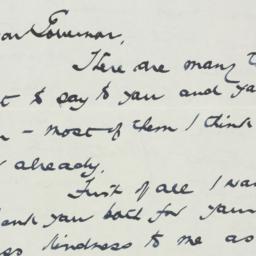 ear Governor,
There are many t
t to say to you and yo
n - most of them I think
already.
First of all I wan
ank you both for your
ess kindness to me as